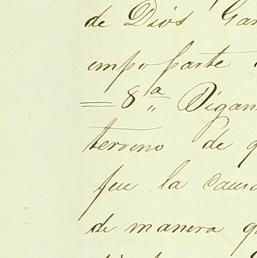 de Dios Gar
impo parte
= 8ª Digan
terreno de q
fue la caus
de manera q